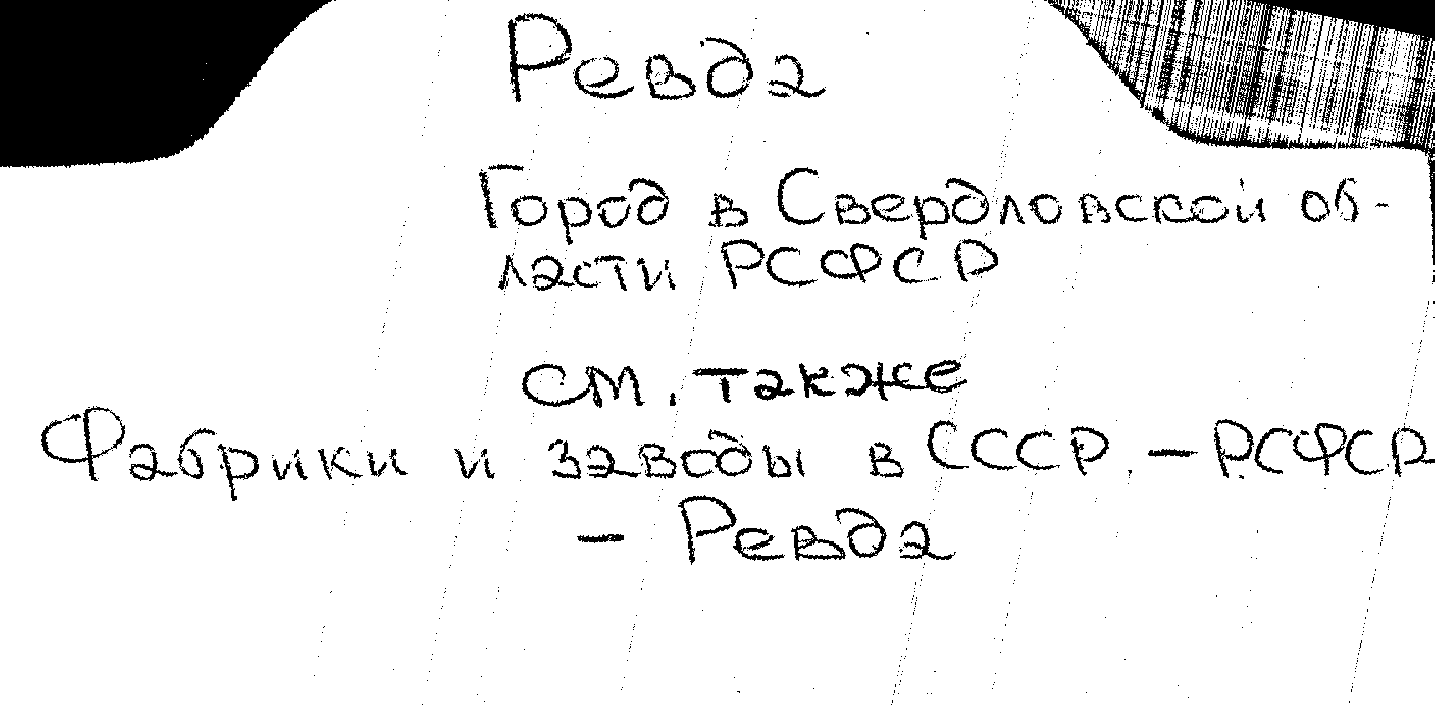 Ревда
Город в Свердловской об-
ласти РСФСР
см. также
Фабрики и заводы в СССР. – РСФСР
– Ревда